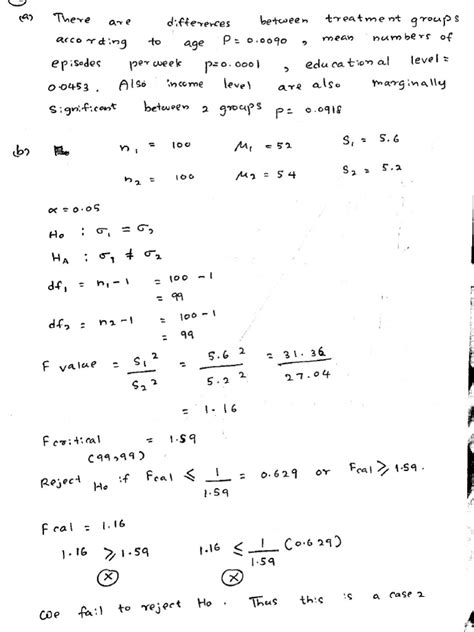 (a) There are differences between treatment groups
according to age P= 0.0090 , mean numbers of
episodes per week p=0.0001 , educational level=
0.0453. Also income level are also marginally
significant between 2 groups p= 0.0918
(b) n1 = 100 M1 = 52 S1 = 5.6
n2 = 100 M2 = 54 S2 = 5.2
α = 0.05
Ho : σ1 = σ2
HA : σ1 ≠ σ2
df1 = n1 - 1 = 100 - 1
= 99
df2 = n2 - 1 = 100 - 1
= 99
F value = S1²/S2² = 5.6²/5.2² = 31.36/27.04
= 1.16
F critical = 1.59
(99,99)
Reject Ho if Fcal ≤ 1/1.59 = 0.629 or Fcal ≥ 1.59.
Fcal = 1.16
1.16 ≥ 1.59 1.16 ≤ 1/1.59 (0.629)
ⓧ ⓧ
We fail to reject Ho . Thus this is a case 2